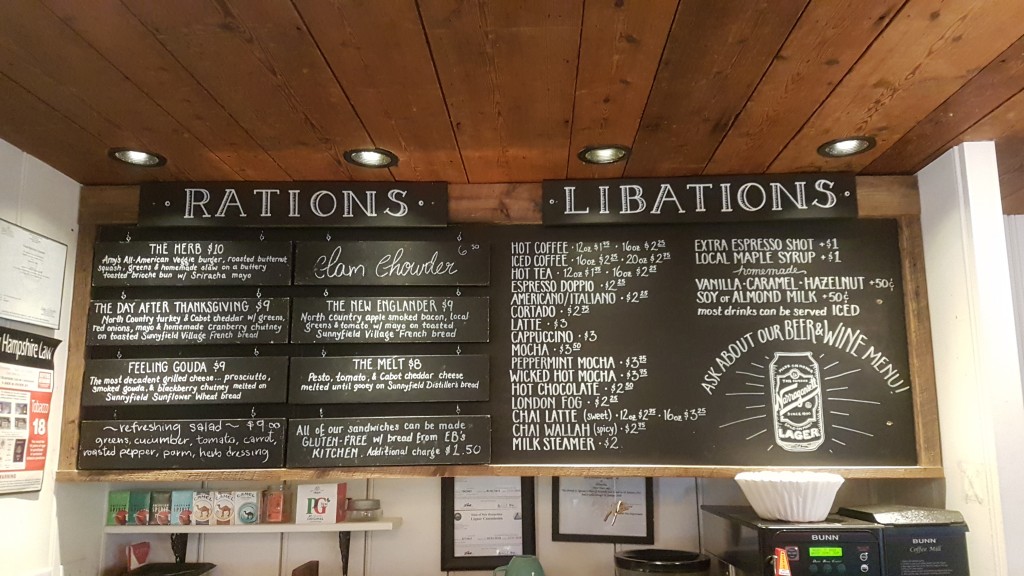 RATIONS
THE HERB $10
Amy's All-American Veggie burger, roasted butternut
squash, greens & homemade slaw on a buttery
toasted brioche bun w/ Sriracha mayo
Clam Chowder 6
THE DAY AFTER THANKSGIVING $9
North Country turkey & Cabot cheddar w/ greens,
red onions, mayo & homemade cranberry chutney
on toasted Sunnyfield Village French bread
THE NEW ENGLANDER $9
North country apple smoked bacon, local
greens & tomato w/ mayo on toasted
Sunnyfield Village French bread
FEELING GOUDA $9
The most decadent grilled cheese... prosciutto,
smoked gouda, & blackberry chutney melted on
Sunnyfield Sunflower Wheat bread
THE MELT $8
Pesto, tomato, & Cabot cheddar cheese
melted until gooey on Sunnyfield Distiller's bread
~refreshing salad~ $9.00
greens, cucumber, tomato, carrot,
roasted pepper, parm, herb dressing
All of our sandwiches can be made
GLUTEN-FREE w/ bread from EB's
KITCHEN. Additional charge $1.50
LIBATIONS
HOT COFFEE · 12oz · 16oz $2.25
ICED COFFEE · 16oz · 20oz
HOT TEA · 12oz · 16oz
ESPRESSO DOPPIO
AMERICANO/ITALIANO
CORTADO
LATTE · $3
CAPPUCCINO · $3
MOCHA · $3.50
PEPPERMINT MOCHA
WICKED HOT MOCHA
HOT CHOCOLATE
LONDON FOG
CHAI LATTE (sweet) · 12oz · 16oz $3.25
CHAI WALLAH (spicy)
MILK STEAMER · $2
EXTRA ESPRESSO SHOT +$1
LOCAL MAPLE SYRUP +$1
homemade
VANILLA·CARAMEL·HAZELNUT +50¢
SOY or ALMOND MILK +50¢
most drinks can be served ICED
ASK ABOUT OUR BEER & WINE MENU!
Narragansett
LAGER
Hampshire Law
Tobacco
18
PG
CAMEL
BUNN
BUNN
Coffee Mill